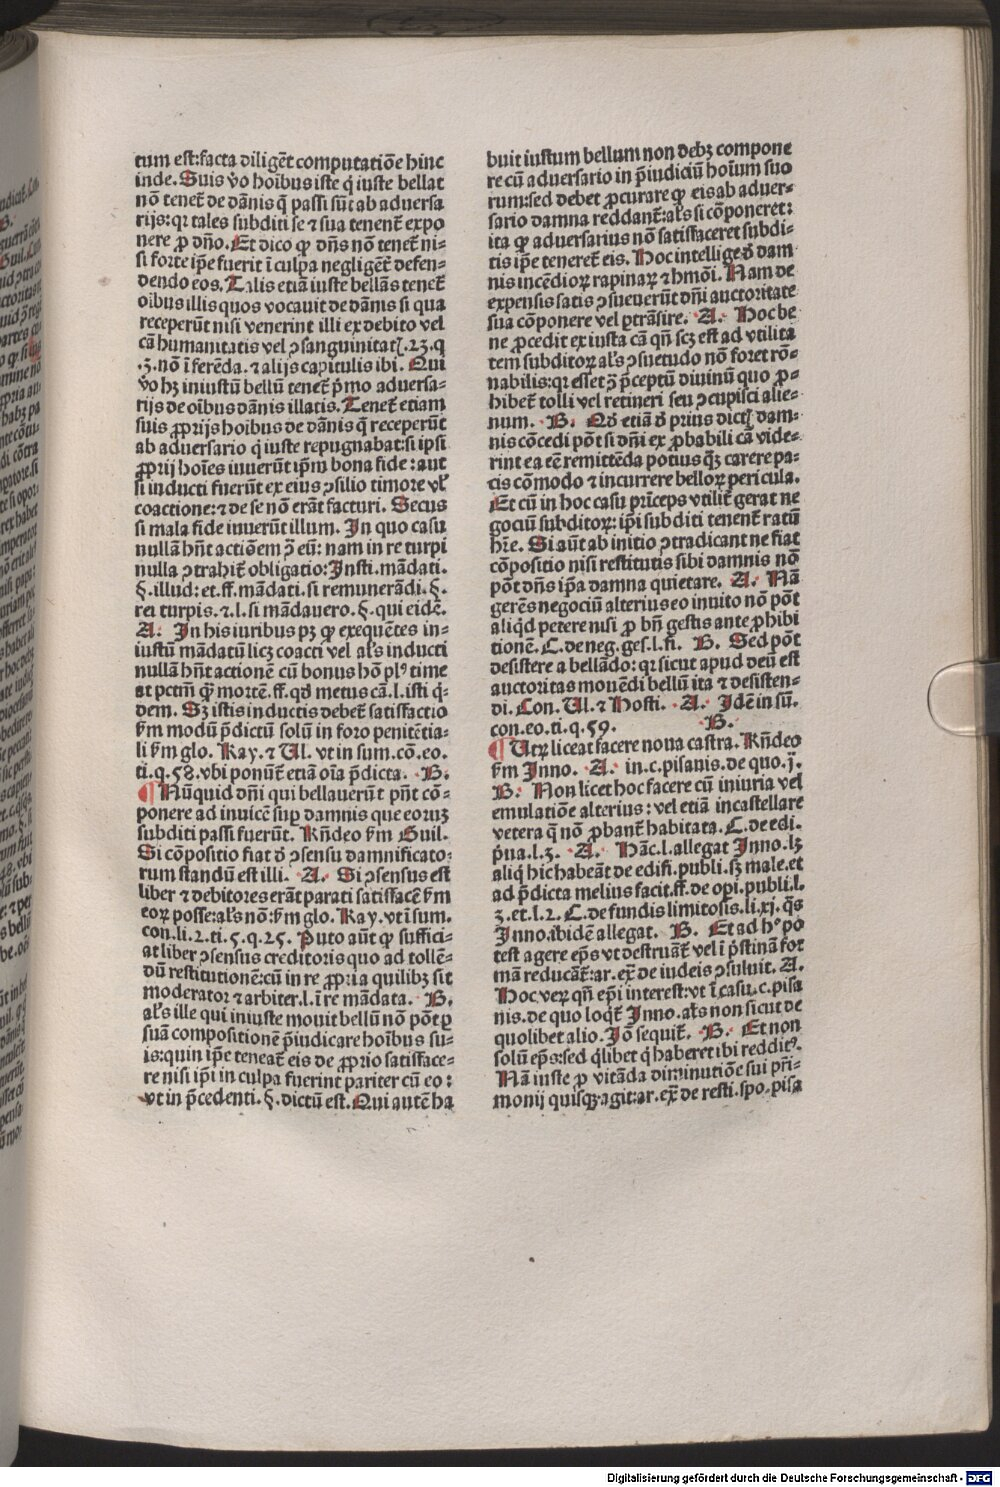 tum est:facta diligēt computatiōe hinc
inde. Suis v̊o hoībus iste q̇ iuste bellat
nō tenet̄ de dānis q̄ passi sūt ab aduersa
rijs:qꝛ tales subditi se ⁊ sua tenent̄ expo
nere ꝓ dn̄o. Et dico ꝙ dn̄s nō tenet̄ ni⸗
si forte ip̄e fuerit ī culpa negligēt̄ defen⸗
dendo eos. Talis etiā iuste bellās tenet̄
oībus illis quos vocauit de dānis si qua
receperūt nisi venerint illi ex debito vel
cā humanitatis vel ꝯsanguinitatꝭ. 23. q
.3. nō ī ferēda. ⁊ alijs capitulis ibi. Qui
v̊o hꝫ iniustū bellū tenet̄ p̄mo aduersa⸗
rijs de oībus dānis illatis. Tenet̄ etiam
suis ꝓprijs hoībus de dānis q̄ receperūt
ab aduersario q̇ iuste repugnabat:si ipsi
ꝓprij hoīes iuuerūt ip̄m bona fide:aut
si inducti fuerūt ex eius ꝯsilio timore vl̓
coactione:⁊ de se nō erāt facturi. Secus
si mala fide iuuerūt illum. In quo casu
nullā hn̄t actiōem ꝯ̄ eū: nam in re turpi
nulla ꝯtrahit̄ obligatio:Insti. mādati.
§. illud: et. ff. mādati. si remunerādi. §.
rei turpis. ⁊. l. si mādauero. §. qui eidē.
A. In his iuribus pꝫ ꝙ exequētes in⸗
iustū mādatū licꝫ coacti vel al̓s inducti
nullā hn̄t actionē cū bonus hō plꝰ time
at pctm̄ q̄ꝫ mortē. ff. qḋ metus cā. l. isti q̇⸗
dem. Sꝫ istis inductis debet̄ satisfactio
s̄m modū p̄dictū solū in foro penitētia⸗
li s̄m glo. Ray. ⁊ Ul. vt in sum. cō. eo.
ti. q. 58. vbi ponūt etiā oīa p̄dicta. B.
¶ Nūquid dn̄i qui bellauerūt pn̄t cō⸗
ponere ad inuicē sup̱ damnis que eoꝝ
subditi passi fuerūt. Rn̄deo s̄m Guil.
Si cōpositio fiat ḋ ꝯsensu damnificato⸗
rum standū est illi. A. Si ꝯsensus est
liber ⁊ debitores erāt parati satisfacē s̄m
eoꝝ posse:al̓s nō:s̄m glo. Ray. vt ī sum.
con. li. 2. ti. 5. q. 25. Puto aūt ꝙ suffici⸗
at liber ꝯsensus creditoris quo ad tollē⸗
dū restitutionē:cū in re ꝓpria quilibꝫ sit
moderator ⁊ arbiter. l. ī re mādata. B.
al̓s ille qui iniuste mouit bellū nō pōt ꝑ
suā compositionē p̄iudicare hoībus su⸗
is:quin ip̄e teneat̄ eis de ꝓprio satisface⸗
re nisi ip̄i in culpa fuerint pariter cū eo:
vt in p̄cedenti. §. dictū est. Qui autē ha
buit iustum bellum non debꝫ compone
re cū aduersario in p̄iudiciū hoīum suo
rum:sed debet ꝓcurare ꝙ eis ab aduer⸗
sario damna reddant̄:al̓s si cōponeret:
ita ꝙ aduersarius nō satisfaceret subdi⸗
tis ip̄e teneret̄ eis. Hoc intellige ḋ dam
nis incēdioꝝ rapinaꝝ ⁊ hmōi. Nam de
expensis satis ꝯsueuerūt dn̄i auctoritate
sua cōponere vel ꝑtrāsire. A. Hoc be
ne procedit ex iusta cā qn̄ scꝫ est ad vtilita
tem subditoꝝ al̓s ꝯsuetudo nō foret rō⸗
nabilis:qꝛ esset ꝯ̄ p̄ceptū diuinū quo ꝓ⸗
hibet̄ tolli vel retineri seu ꝯcupisci alie⸗
num. B. Qḋ etiā ḋ prius dictꝭ dam⸗
nis cōcedi pōt si dn̄i ex ꝓbabili cā vide⸗
rint ea eē remittēda potius q̄ꝫ carere pa⸗
cis cōmodo ⁊ incurrere belloꝝ pericula.
Et cū in hoc casu prīceps vtilit̄ gerat ne
gociū subditoꝝ: ip̄i subditi tenent̄ ratū
hr̄e. Si aūt ab initio ꝯtradicant ne fiat
cōpositio nisi restitutis sibi damnis nō
pōt dn̄s ip̄a damna quietare. A. Nā
gerēs negociū alterius eo inuito nō pōt
aliq̇d petere nisi ꝓ bn̄ gestis ante ꝓhibi
tionē. C. de neg. ges. l. fi. B. Sed pōt
desistere a bellādo:qꝛ sicut apud deū est
auctoritas mouēdi bellū ita ⁊ desisten⸗
di. Con. Ul. ⁊ Hosti. A. Idē in sū.
con. eo. ti. q. 59. B.
¶ Utꝝ liceat facere noua castra. Rn̄deo
s̄m Inno. A. in. c. pisanis. de quo. j̄.
B. Non licet hoc facere cū iniuria vel
emulatiōe alterius: vel etiā incastellare
vetera q̄ nō ꝓbant̄ habitata. C. de edi.
p̓ua. l. 3. A. Hāc. l. allegat Inno. lꝫ
aliq̇ hic habeāt de edifi. publi. sꝫ male. et
ad p̄dicta melius facit. ff. de opi. publi. l.
3. et. l. 2. C. de fundis limitosis. li. xj. q̄s
Inno. ibidē allegat. B. Et ad hͦ po
test agere ep̄s vt destruāt̄ vel ī p̓stinā for
mā reducāt̄:ar. ex̄ de iudeis ꝯsuluit. A.
Hoc veꝝ qn̄ ep̄i interest:vt ī casu. c. pisa
nis. de quo loqt̄ Inno. al̓s non sicut de
quolibet alio. Iō sequit̄. B. Et non
solū ep̄s:sed q̇libet q̇ haberet ibi redditꝰ.
Nā iuste ꝓ vitāda diminutiōe sui pr̄i⸗
monij quisqꝫ agit:ar. ex̄ de resti. spo. pisa
Digitalisierung gefördert durch die Deutsche Forschungsgemeinschaft - DFG